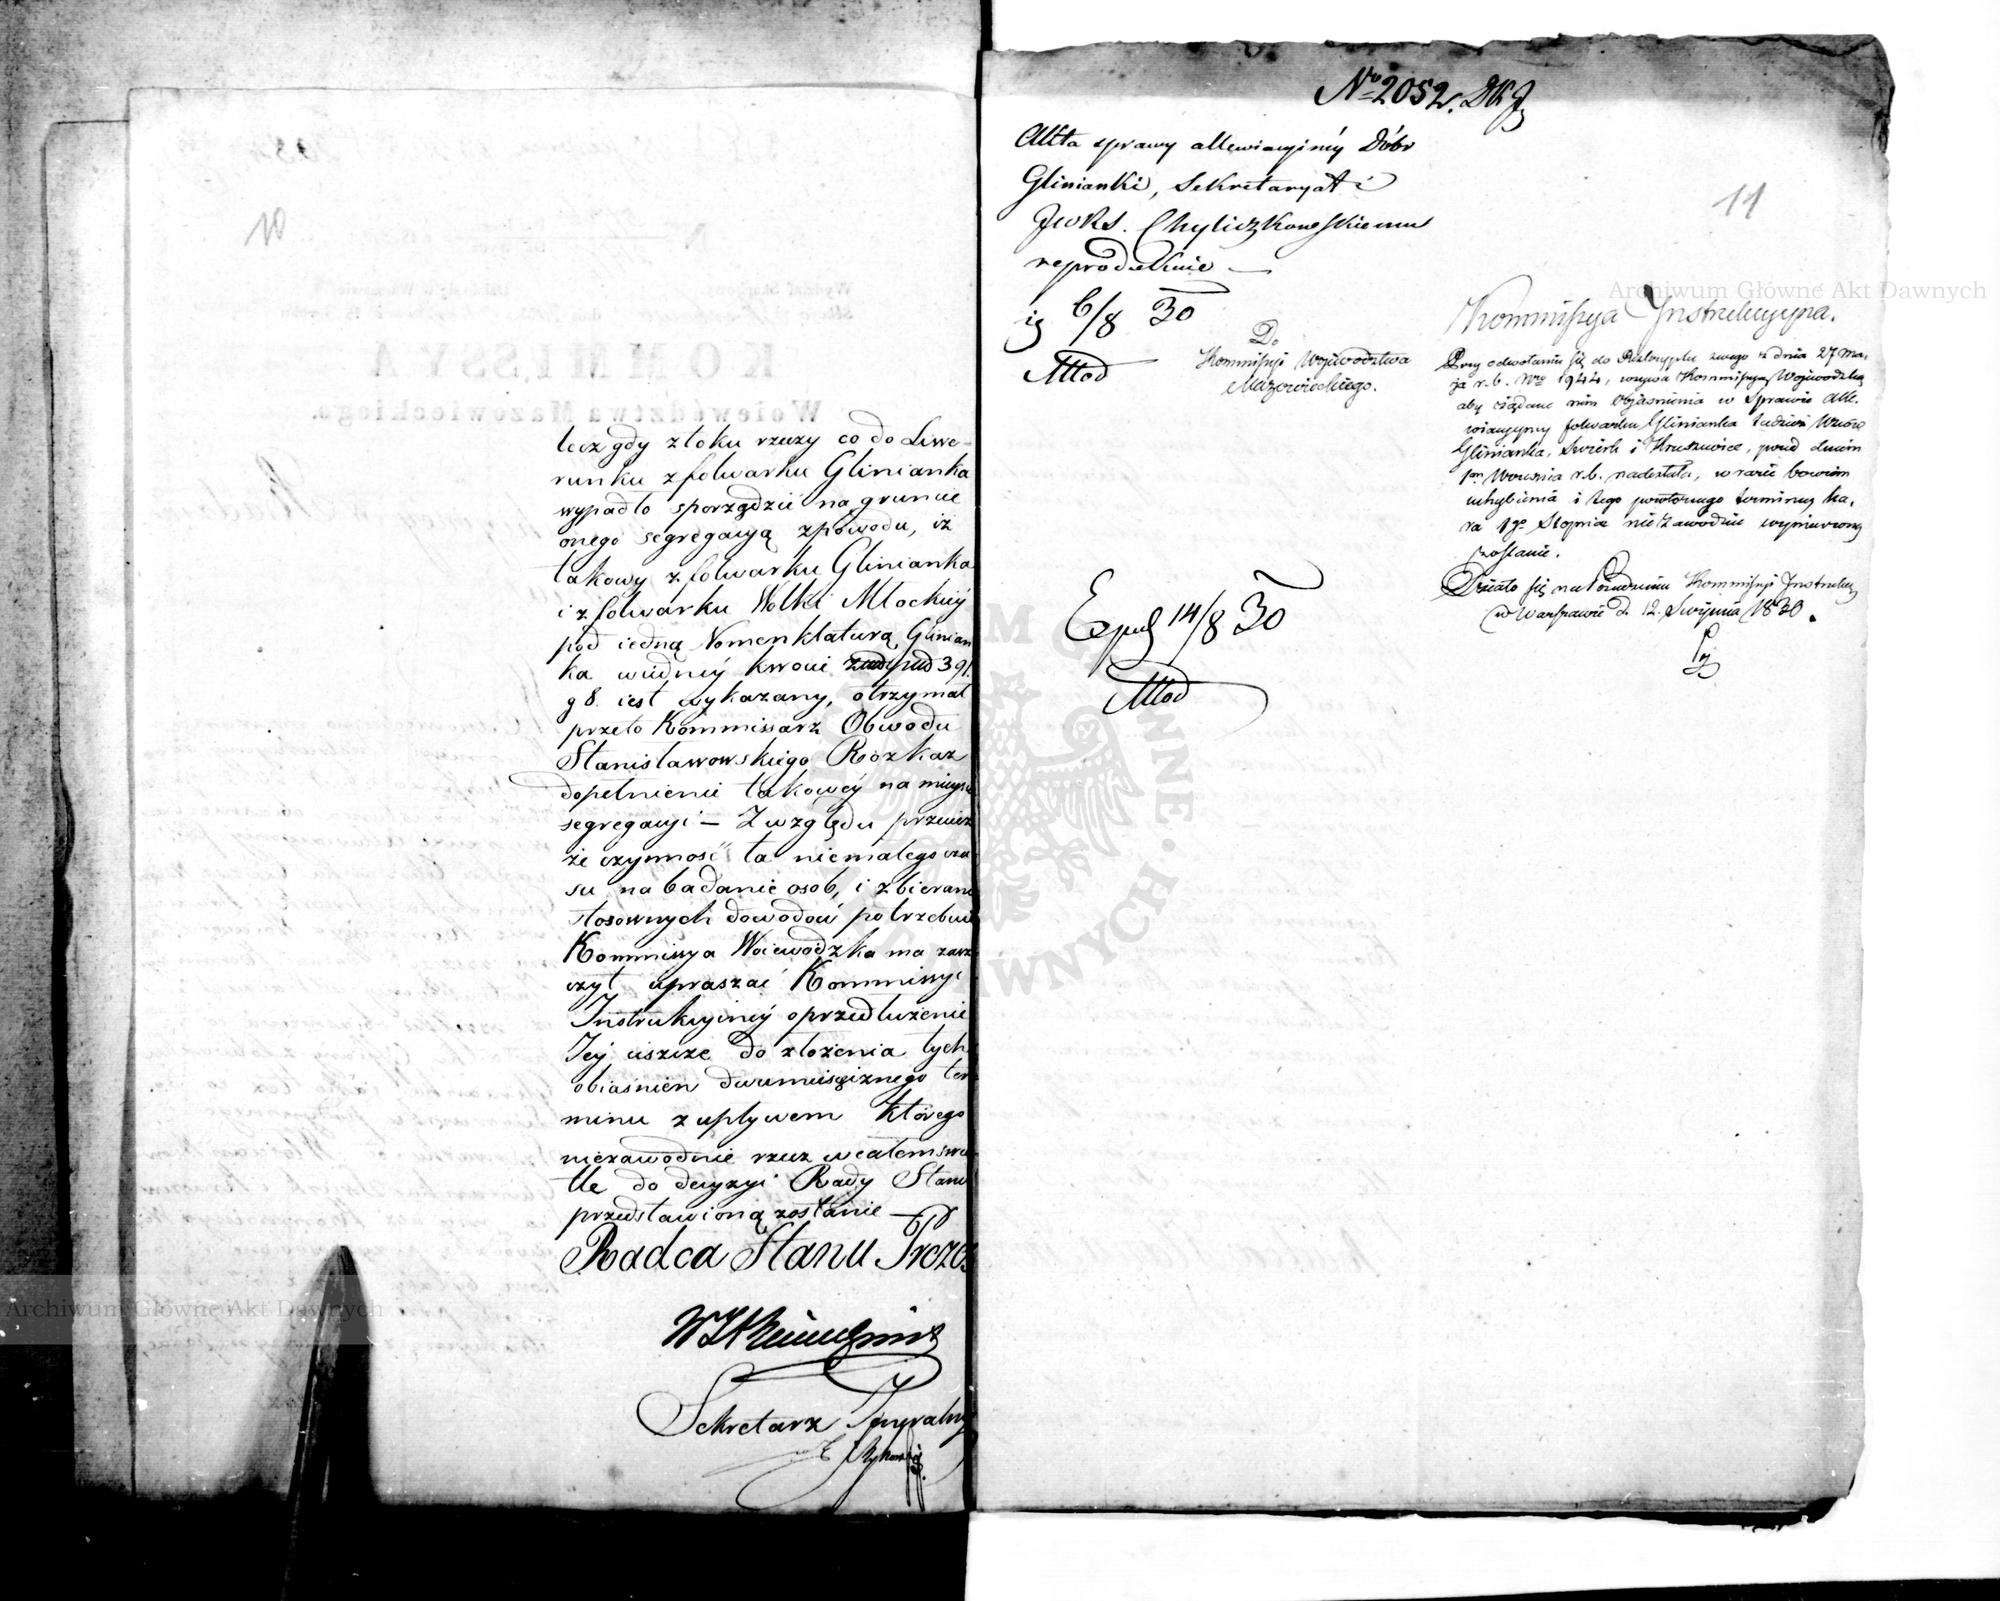 lecz gdy z toku rzeczy co do Liwe-
runku z folwarku Glinianka
wypadło sporządzić na gruncie
onego segregacyą z powodu, iż
takowy z folwarku Glinianka
i z folwarku Wolki Mlockiéy
pod iedną Nomenklaturą Glinian
ka w iednéy kwocie 391.
g 8. iest wykazany, otrzymał
przeto Kommissarz Obwodu
Stanisławowskiego Rozkaz
dopełnienie takowéy na mieysc
segregacyi — Z względu przecież
że czynność ta niemałego cza
su na badanie osob, i zbieranie
stosownych dowodów potrzebuie
Kommissya Woiewódzka ma zasz
czyt upraszać Kommissyi
Instrukcyinéy o przedłużenie
Iéy ieszcze do złożenia tych
obiaśnień dwumiesięcznego ter
minu z upływem którego
niezawodnie rzecz w całem świe
tle do decyzyi Rady Stanu
przedstawioną zostanie —
Radca Stanu Prezes
Sekretarz Jeneralny
No 2052. DKJ
Akta sprawy allewiacyjnéy Dóbr
Glinianki, Sekretaryat i
JWRS. Chyliczkowskiemu
reprodukuie —
6/8 30
Młod
11
Do
Kommissyi Województwa
Mazowieckiego.
Kommissya Instrukcyjna.
Przy odwołaniu się do Reskryptu swego z dnia 27 Ma-
ja r.b. Nro 1944, wzywa Kommissyą Wojewódzką
aby żądane nim objaśnienia w sprawie alle-
wiacyjnéy folwarku Glinianka tudzież Wsiów
Glinianka, Swierk i Kruszowiec, przed dniem
1m Września r.b. nadesłała, w razie bowiem
uchybienia i tego powtórnego terminu, ka-
ra 1go Stopnia niezawodnie wymierzoną
zostanie.
Działo się na Posiedzeniu Kommissyi Instrukcy
w Warszawie d. 12. Sierpnia 1830.
Exped 14/8 30
Młod
Archiwum Główne Akt Dawnych
Archiwum Główne Akt Dawnych